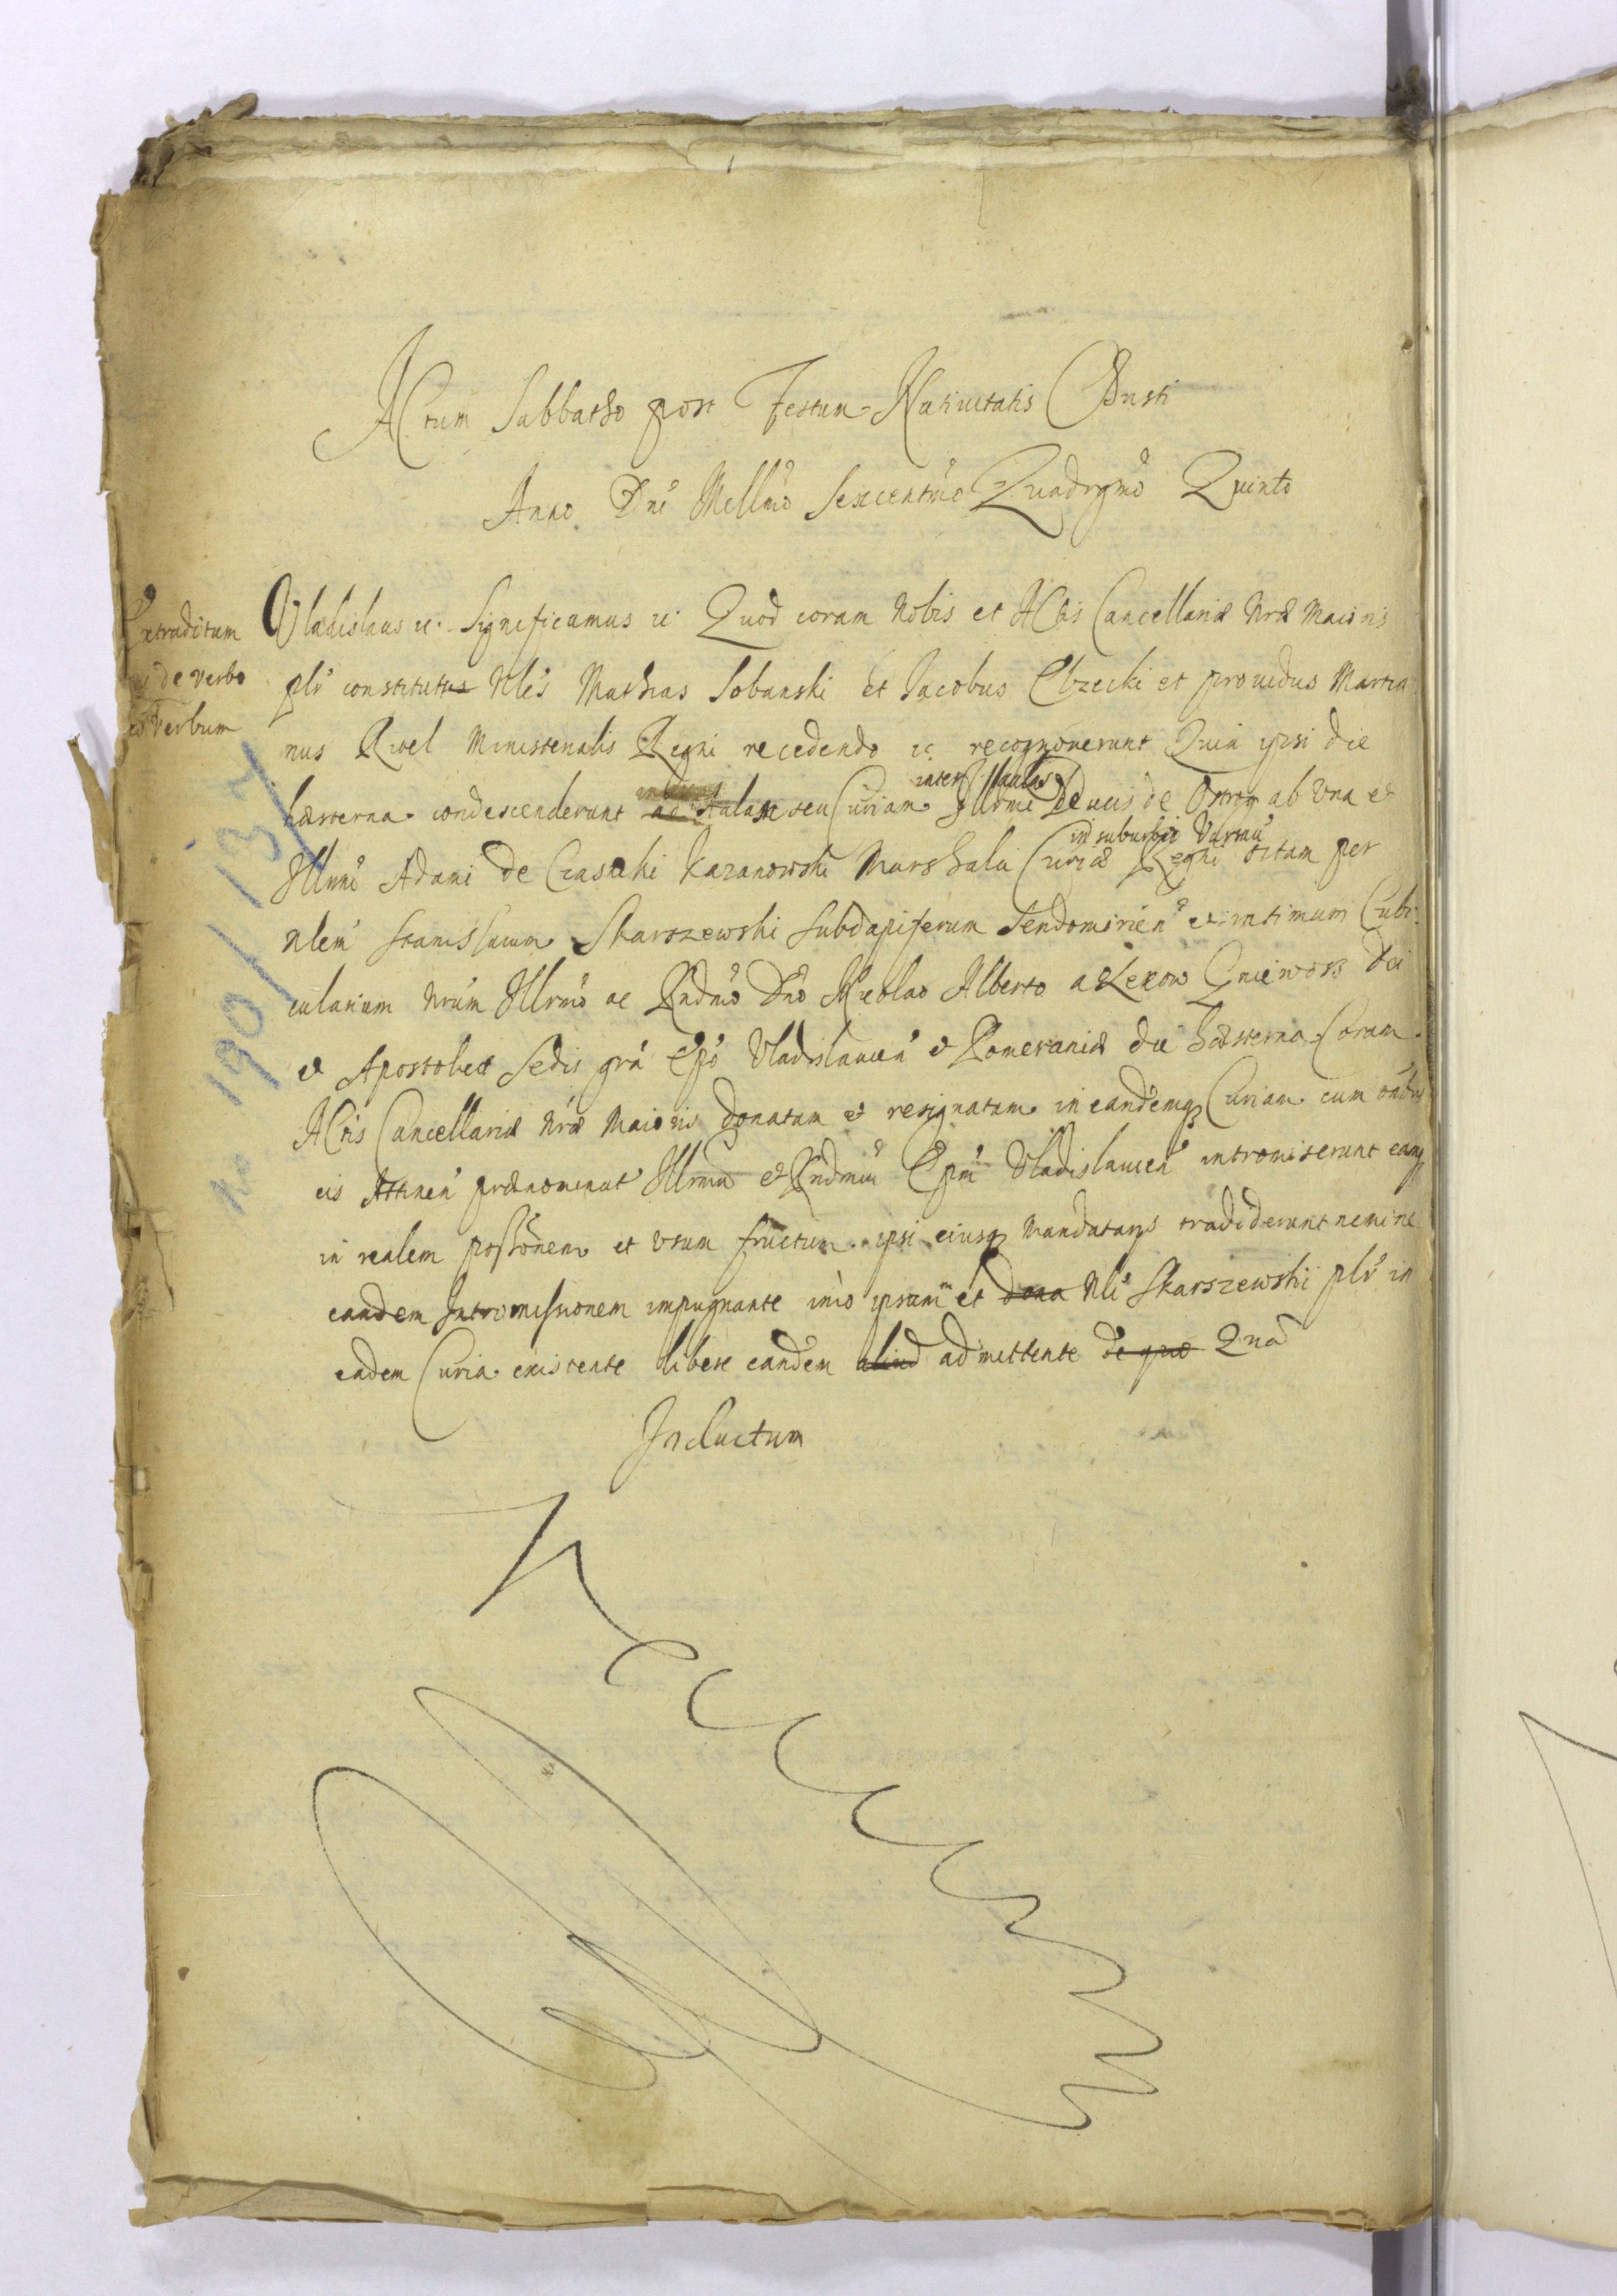 Actum Sabbatho post Festum Natiuitatis Christi
Anno Dni Mellmo Sexcentmo Quadrgmo Quinto
Extraditum
de verbo
ad verbum
Vladislaus etc. Significamus etc. Quod coram Nobis et Actis Cancellariæ Nræ Maioris
plr constitutus Nles Mathias Sobanski et Jacobus Obrecki et prouidus Martia
nus Rwel Ministerialis Regni recedendo etc recognouerunt Quia ipsi die
hæsterna condescenderunt ad Aulam seu Curiam inter Aulas Illrmi Ducis de Ostrog ab Vna et
Illmi Adami de Czaski Kazanowski Marshalci Curiæ Regni in suburbio Varsau sitam per
Nlem Stanislaum Skarszewski Subdapiferum Sendomirien et intimum Cubi
cularium Nrum Illrmo ac Rndmo Dno Nicolao Alberto a Lexow Gniewosz Dei
et Apostolicæ Sedis gra Epo Vladislauien et Pomeraniæ die hæsterna Coram
Actis Cancellariæ Nræ Maioris donatam et resignatam in eandemq Curiam cum omnibus
eis Attinen prænominat Illrmum et Rndmum Epm Vladislauien intromiserunt eamq
in realem possonem et vsum fructum ipsi eiusq Mandatarys tradiderunt nemine
eandem Intromissionem impugnante imo ipsum et dona Nli Skarszewski plr in
eadem Curia existente libere eandem aliud admittente de quo Qua
Inductum
190/137